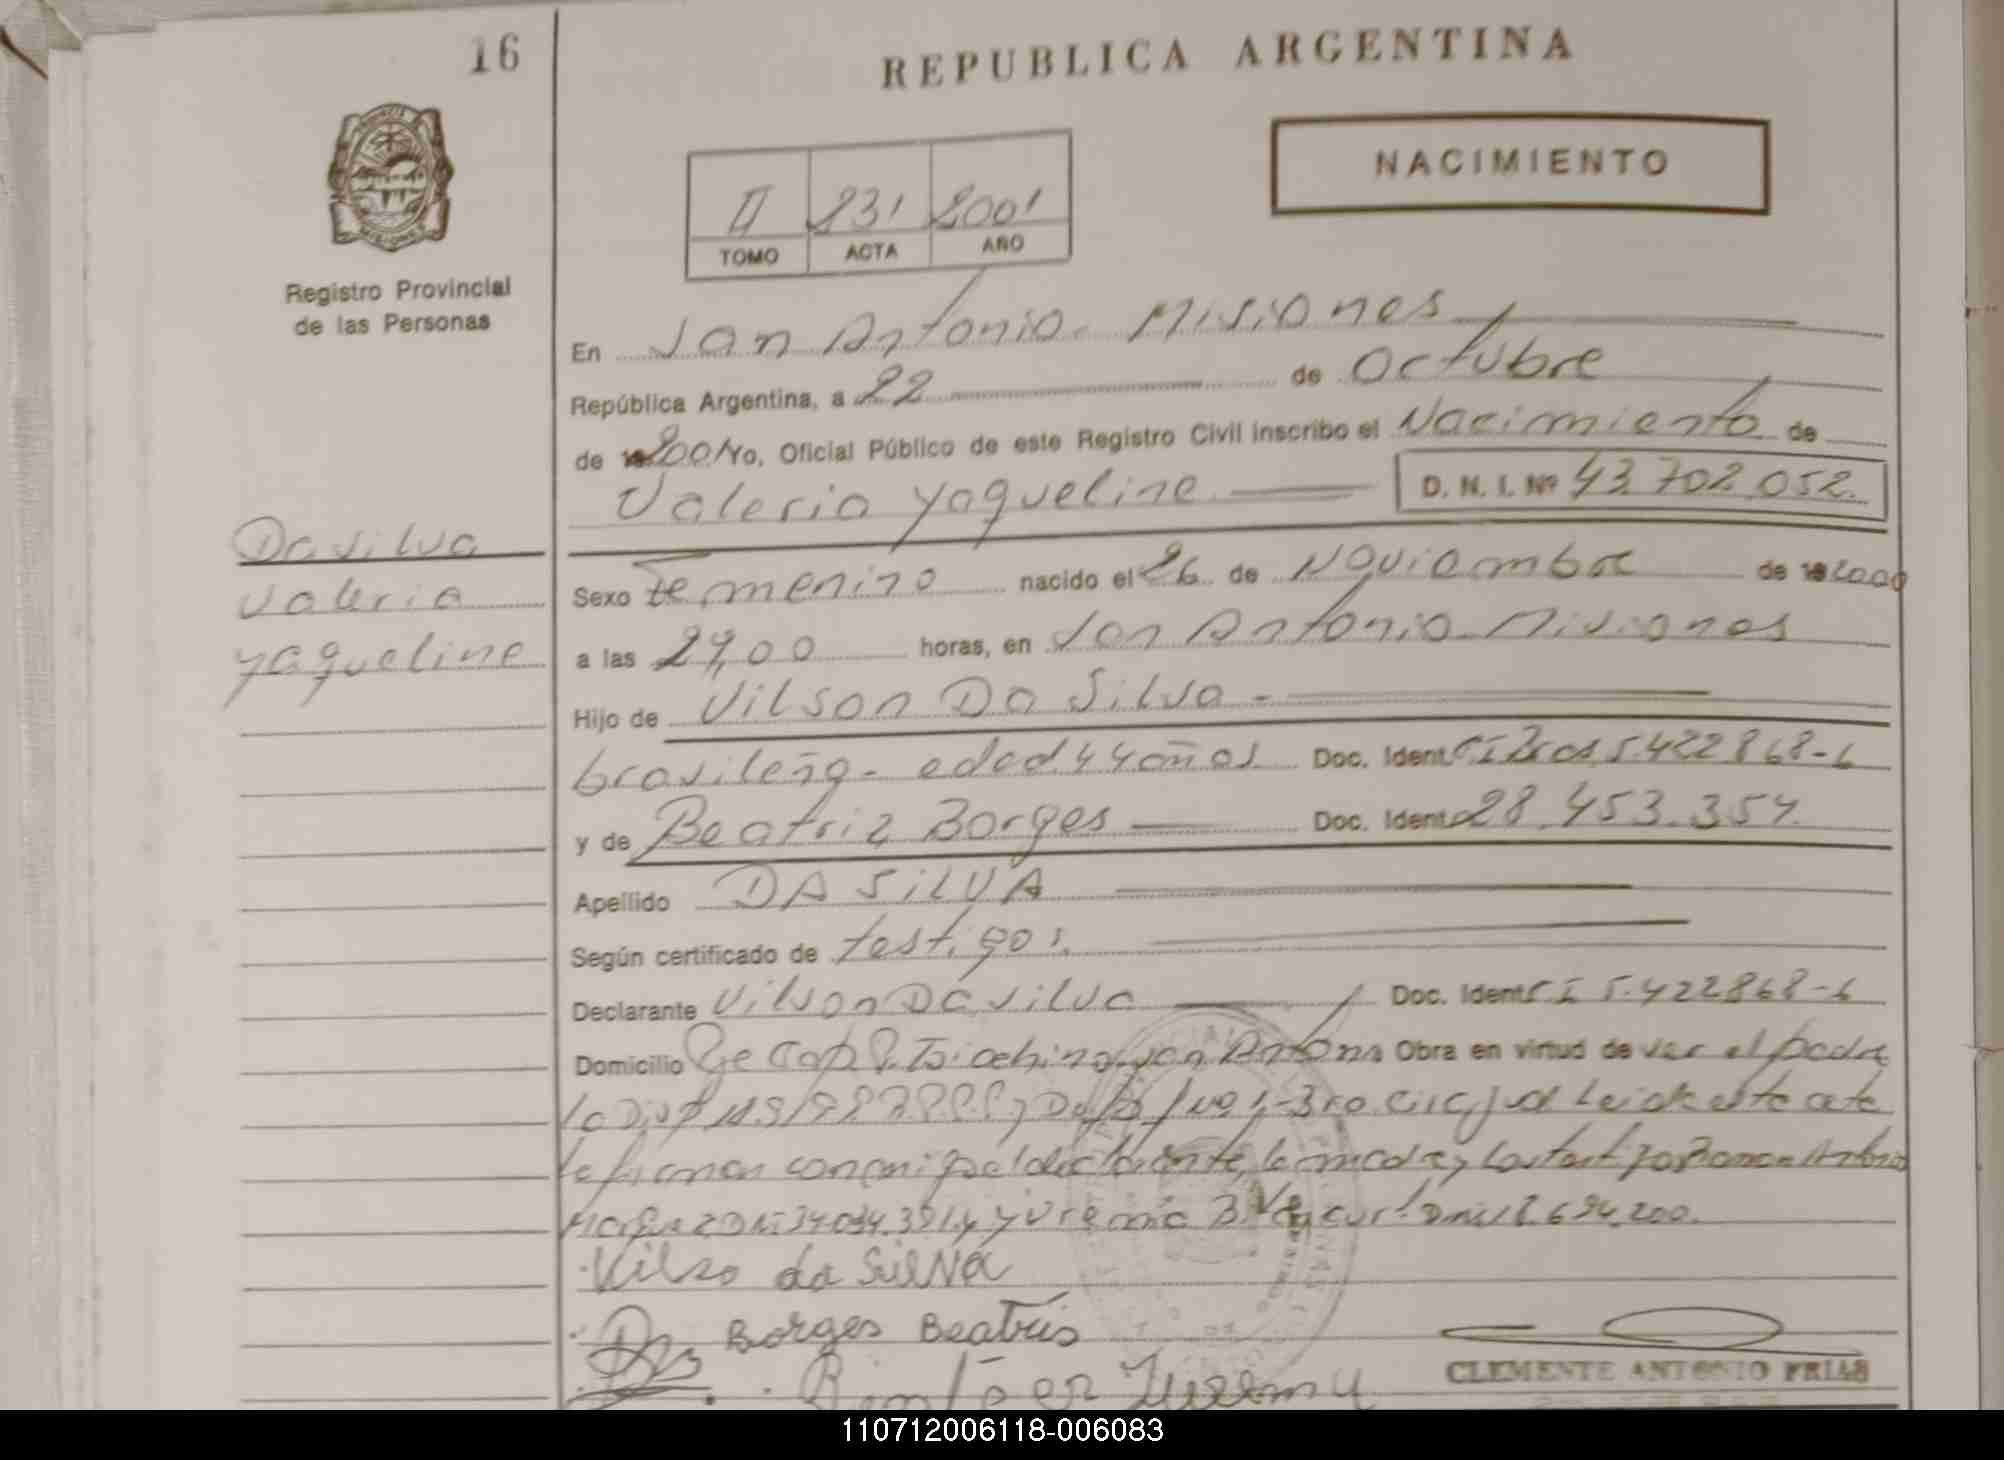 16
REPUBLICA ARGENTINA
NACIMIENTO
II 231 2001
TOMO ACTA AÑO
MISIONES
Registro Provincial
de las Personas
En San Antonio - Misiones
República Argentina, a 22 de Octubre
de 2001 Yo, Oficial Público de este Registro Civil inscribo el Nacimiento de
Valeria Yaqueline D. N. I. Nº 43.702.052.
Da Silva
Valeria
Yaqueline
Sexo Femenino nacido el 26 de Noviembre de 2000
a las horas, en San Antonio - Misiones
Hijo de Vilson Da Silva -
brasileña - edad 44 años Doc. Ident 5.422868-6
y de Beatriz Borges Doc. Ident 28.453.354.
Apellido DA SILVA
Según certificado de testigos.
Declarante Vilson Da Silva Doc. Ident CI 5.422868-6
Domicilio San Antonio Obra en virtud de ser el padre
3ra. Circ. Jud. Leida este acta
la firman conmigo el declarante, la madre y los testigos Antonio
Vilso da SilNa
Borges Beatris
CLEMENTE ANTONIO FRIAS
110712006118-006083